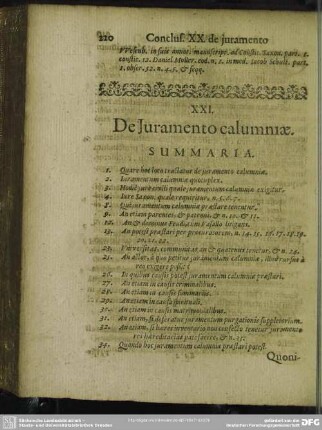 220 Concluſ. XX. de juramento
VVeſenb. in ſuis annot. manuſcript. ad Conſtit. Saxon. part. 1.
conſtit. 12. Daniel Moller. eod. n. 1. in med. Iacob Schult. part.
1. obſer. 52. n. 4. 5. & ſeqq.
XXI.
De Juramento calumniæ.
SUMMARIA.
1. Quare hoc loco tractatur de juramento calumniæ.
2. Iuramentum calumniæ quotuplex.
3. Hodie jure civili quale juramentum calumniæ exigatur.
4. Iure Saxon. quale requiratur, n. 5. 6. 7.
8. Qui juramentum calumniæ præſtare teneatur.
9. An etiam parentes, & patroni. & n. 10. & 11.
12. An & dominus Feudi cum Vaſallo litigans.
13. An poſſit præſtari per procuratorem. n. 14. 15. 16. 17. 18. 19.
20. 21. 22.
23. Univerſitas, communitas an & quatenus teneatur, & n. 24.
25. An actor, à quo petitur juramentum calumniæ, illud rurſus à
reo exigere poſſit?
26. In quibus cauſis poſſit juramentum calumniæ præſtari.
27. An etiam in cauſis criminalibus.
28. An etiam in cauſis ſummariis.
29. An etiam in cauſis ſpirituali.
30. An etiam in cauſis matrimonialibus.
31. An etiam, ſi deferatur juramentum purgationis ſuppletorium.
32. An etiam, ſi hæres inventario non confecto tenetur juramento
res hæreditarias patefacere, & n. 33.
34. Quando hoc juramentum calumniæ præſtari poteſt.
Quoni-